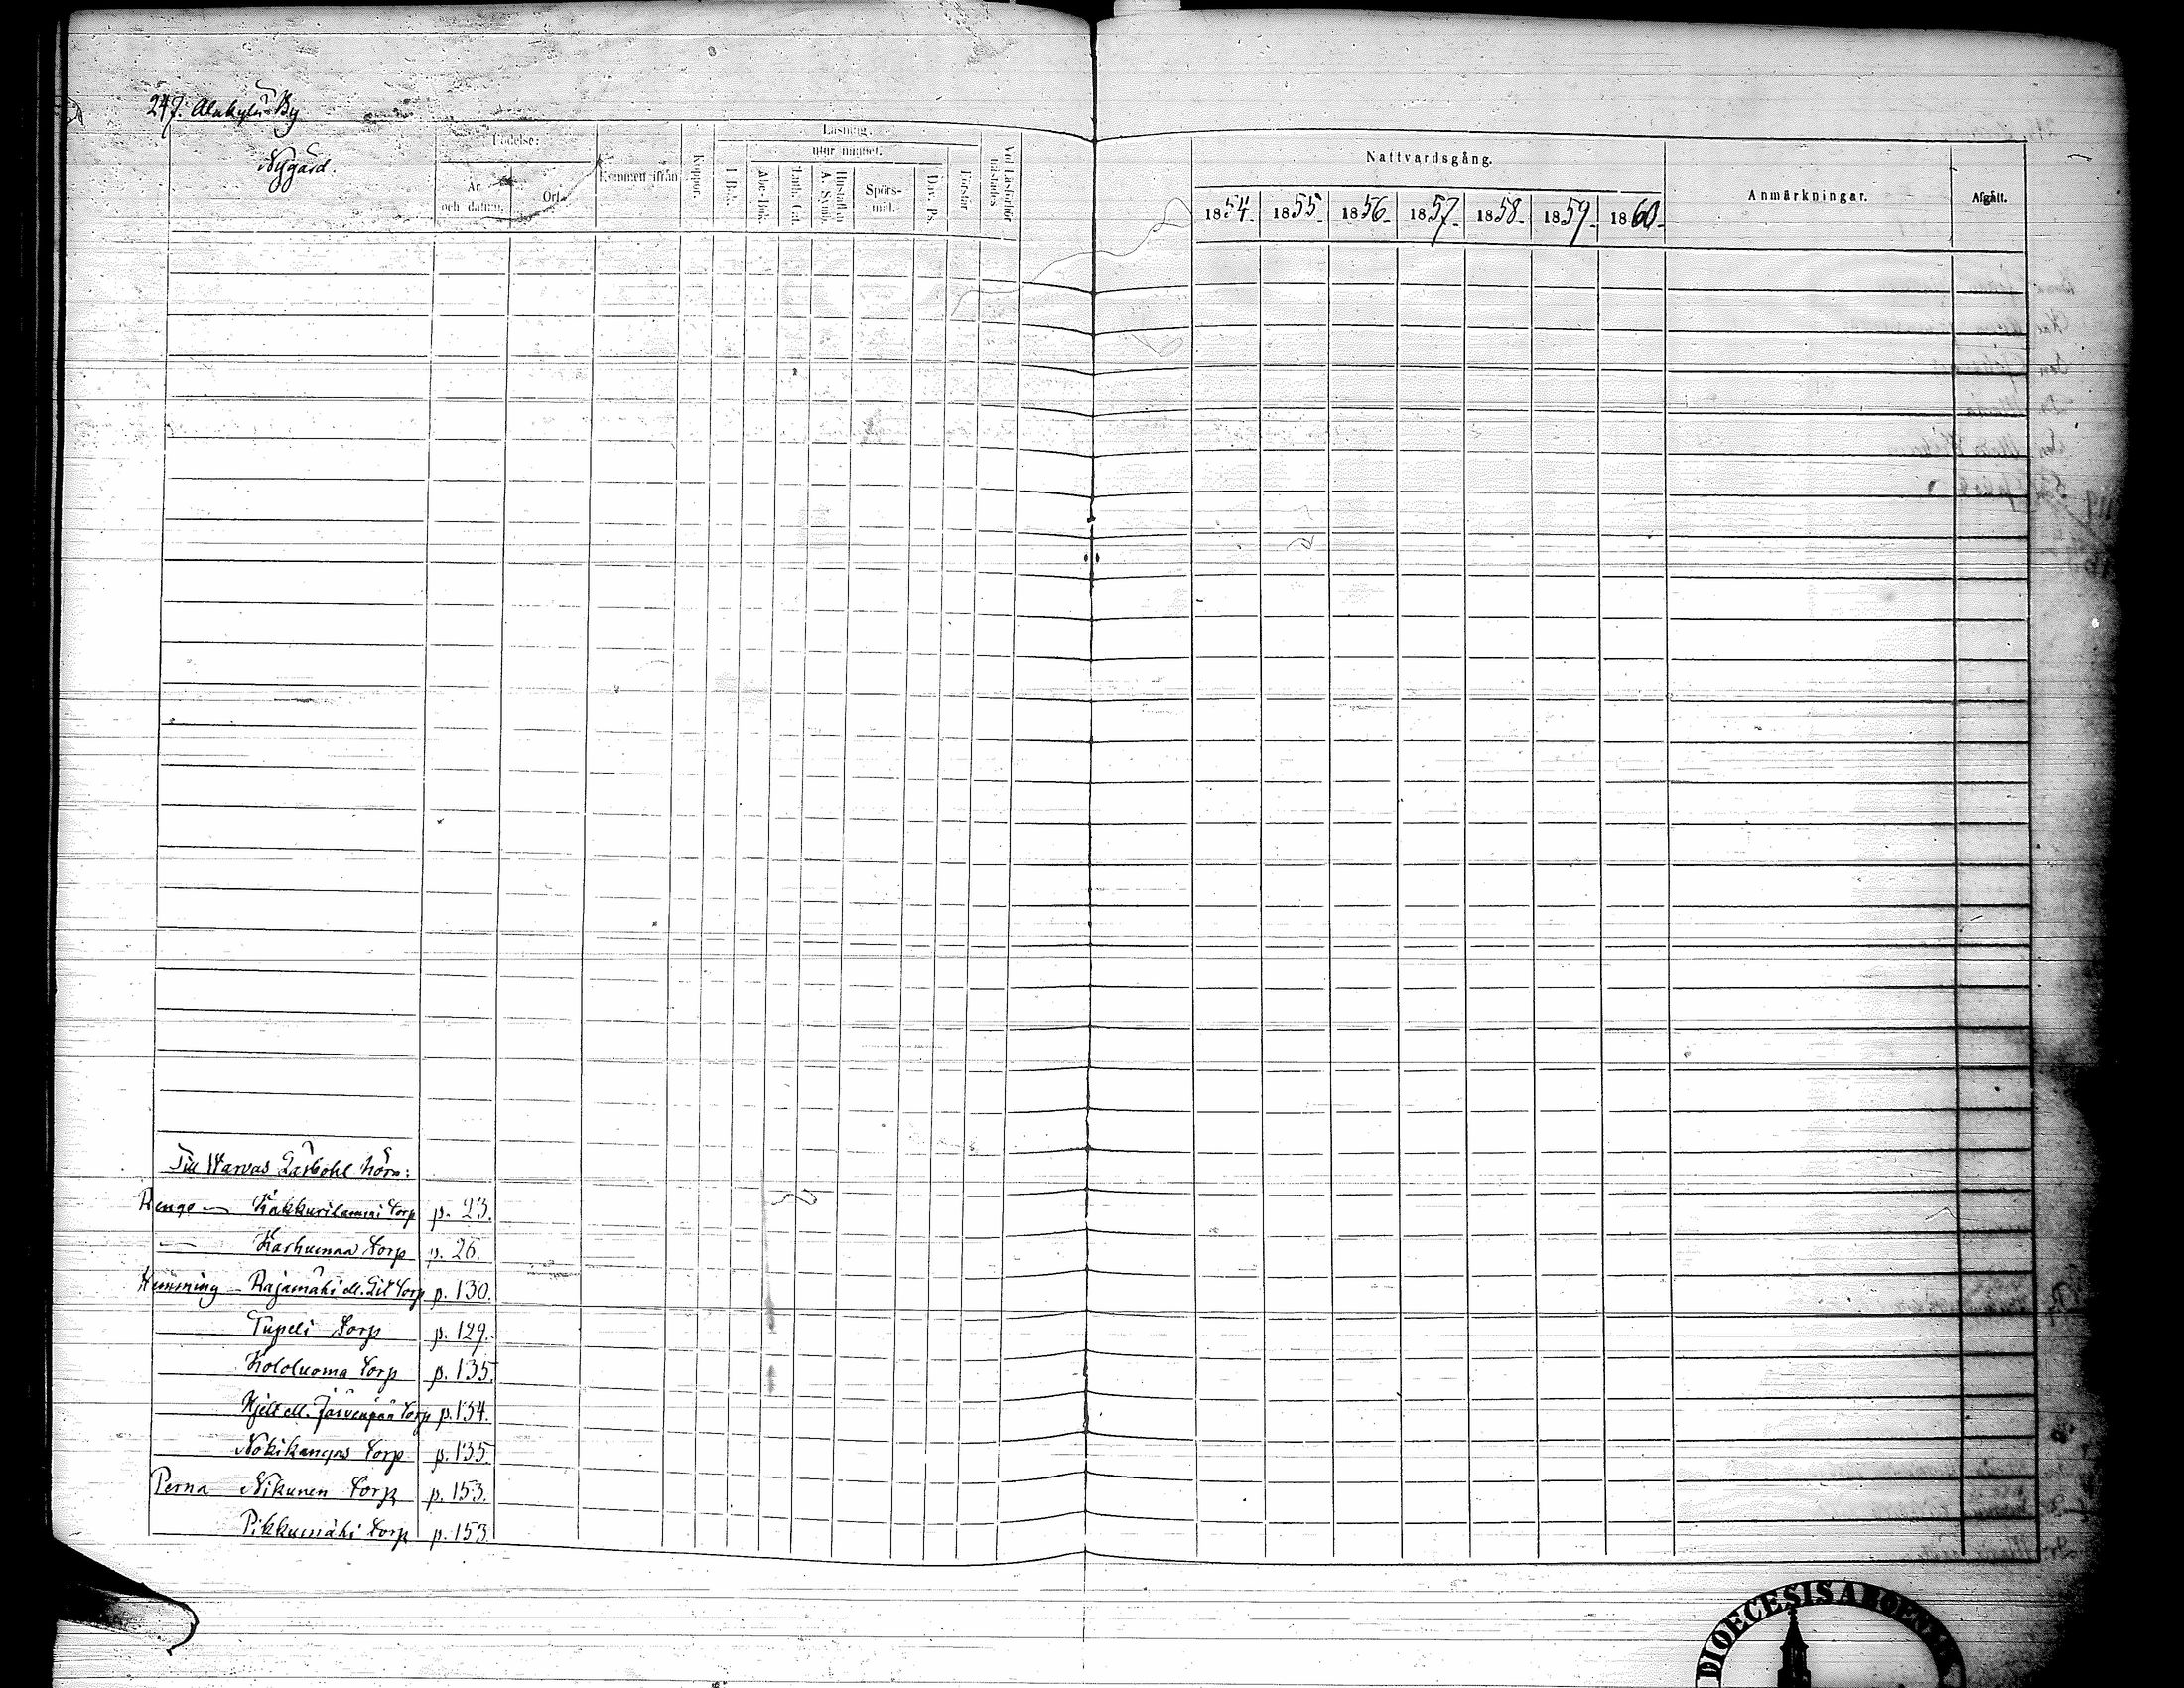 247. Alakylä By
Nygård.
Födelse:
År och datum.
Ort.
Kommen ifrån
Koppor.
Läsning.
utur minnet.
I Bok.
Abc-Bok.
Luth. Cat.
Hustaflan A. Symb.
Spörs-mål.
Dav. Ps.
Förstår
Vid Läsförhör
Nattvardsgång.
1854. 1855. 1856. 1857. 1858. 1859. 1860.
Anmärkningar.
Afgått.
Till Warvas Gästbohl höra:
Renge — Kakkurilammi Torp p. 23.
— Karhumaa Torp p. 26.
Hemming — Rajamäki ell. Torp p. 130.
Tupeli Torp p. 129.
Kololuoma Torp p. 135.
Hjelt ell. Järvenpää Torp p. 134.
Nokikangas Torp p. 135.
Perna Nikunen Torp p. 153.
Pikkumäki Torp p. 153.
DIOECESIS ABOENSIS